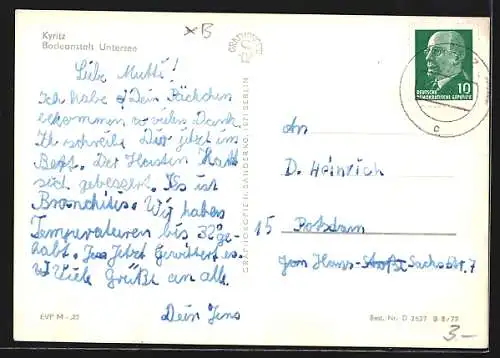 Kyritz
Badeanstalt Untersee
×B
Liebe Mutti!
Ich habe Dein Päckchen
bekommen, vielen Dank.
Ich schreibe Dir jetzt im
Bett. Der Husten
sich gebessert. Es ist
Bronchitis. Wir haben
Temperaturen bis 32° ge-
habt. Jetzt Gewittert es.
Viele Grüße an alle.
Dein Jens
GRAPHOKOPIE H. SANDER KG, 1071 BERLIN
10
DEUTSCHE
DEMOKRATISCHE REPUBLIK
An
D. Heinrich
15 Potsdam
Hans-Sachs Str. 7
EVP M -,22
Best. Nr. D 2637 B 8/72
3-